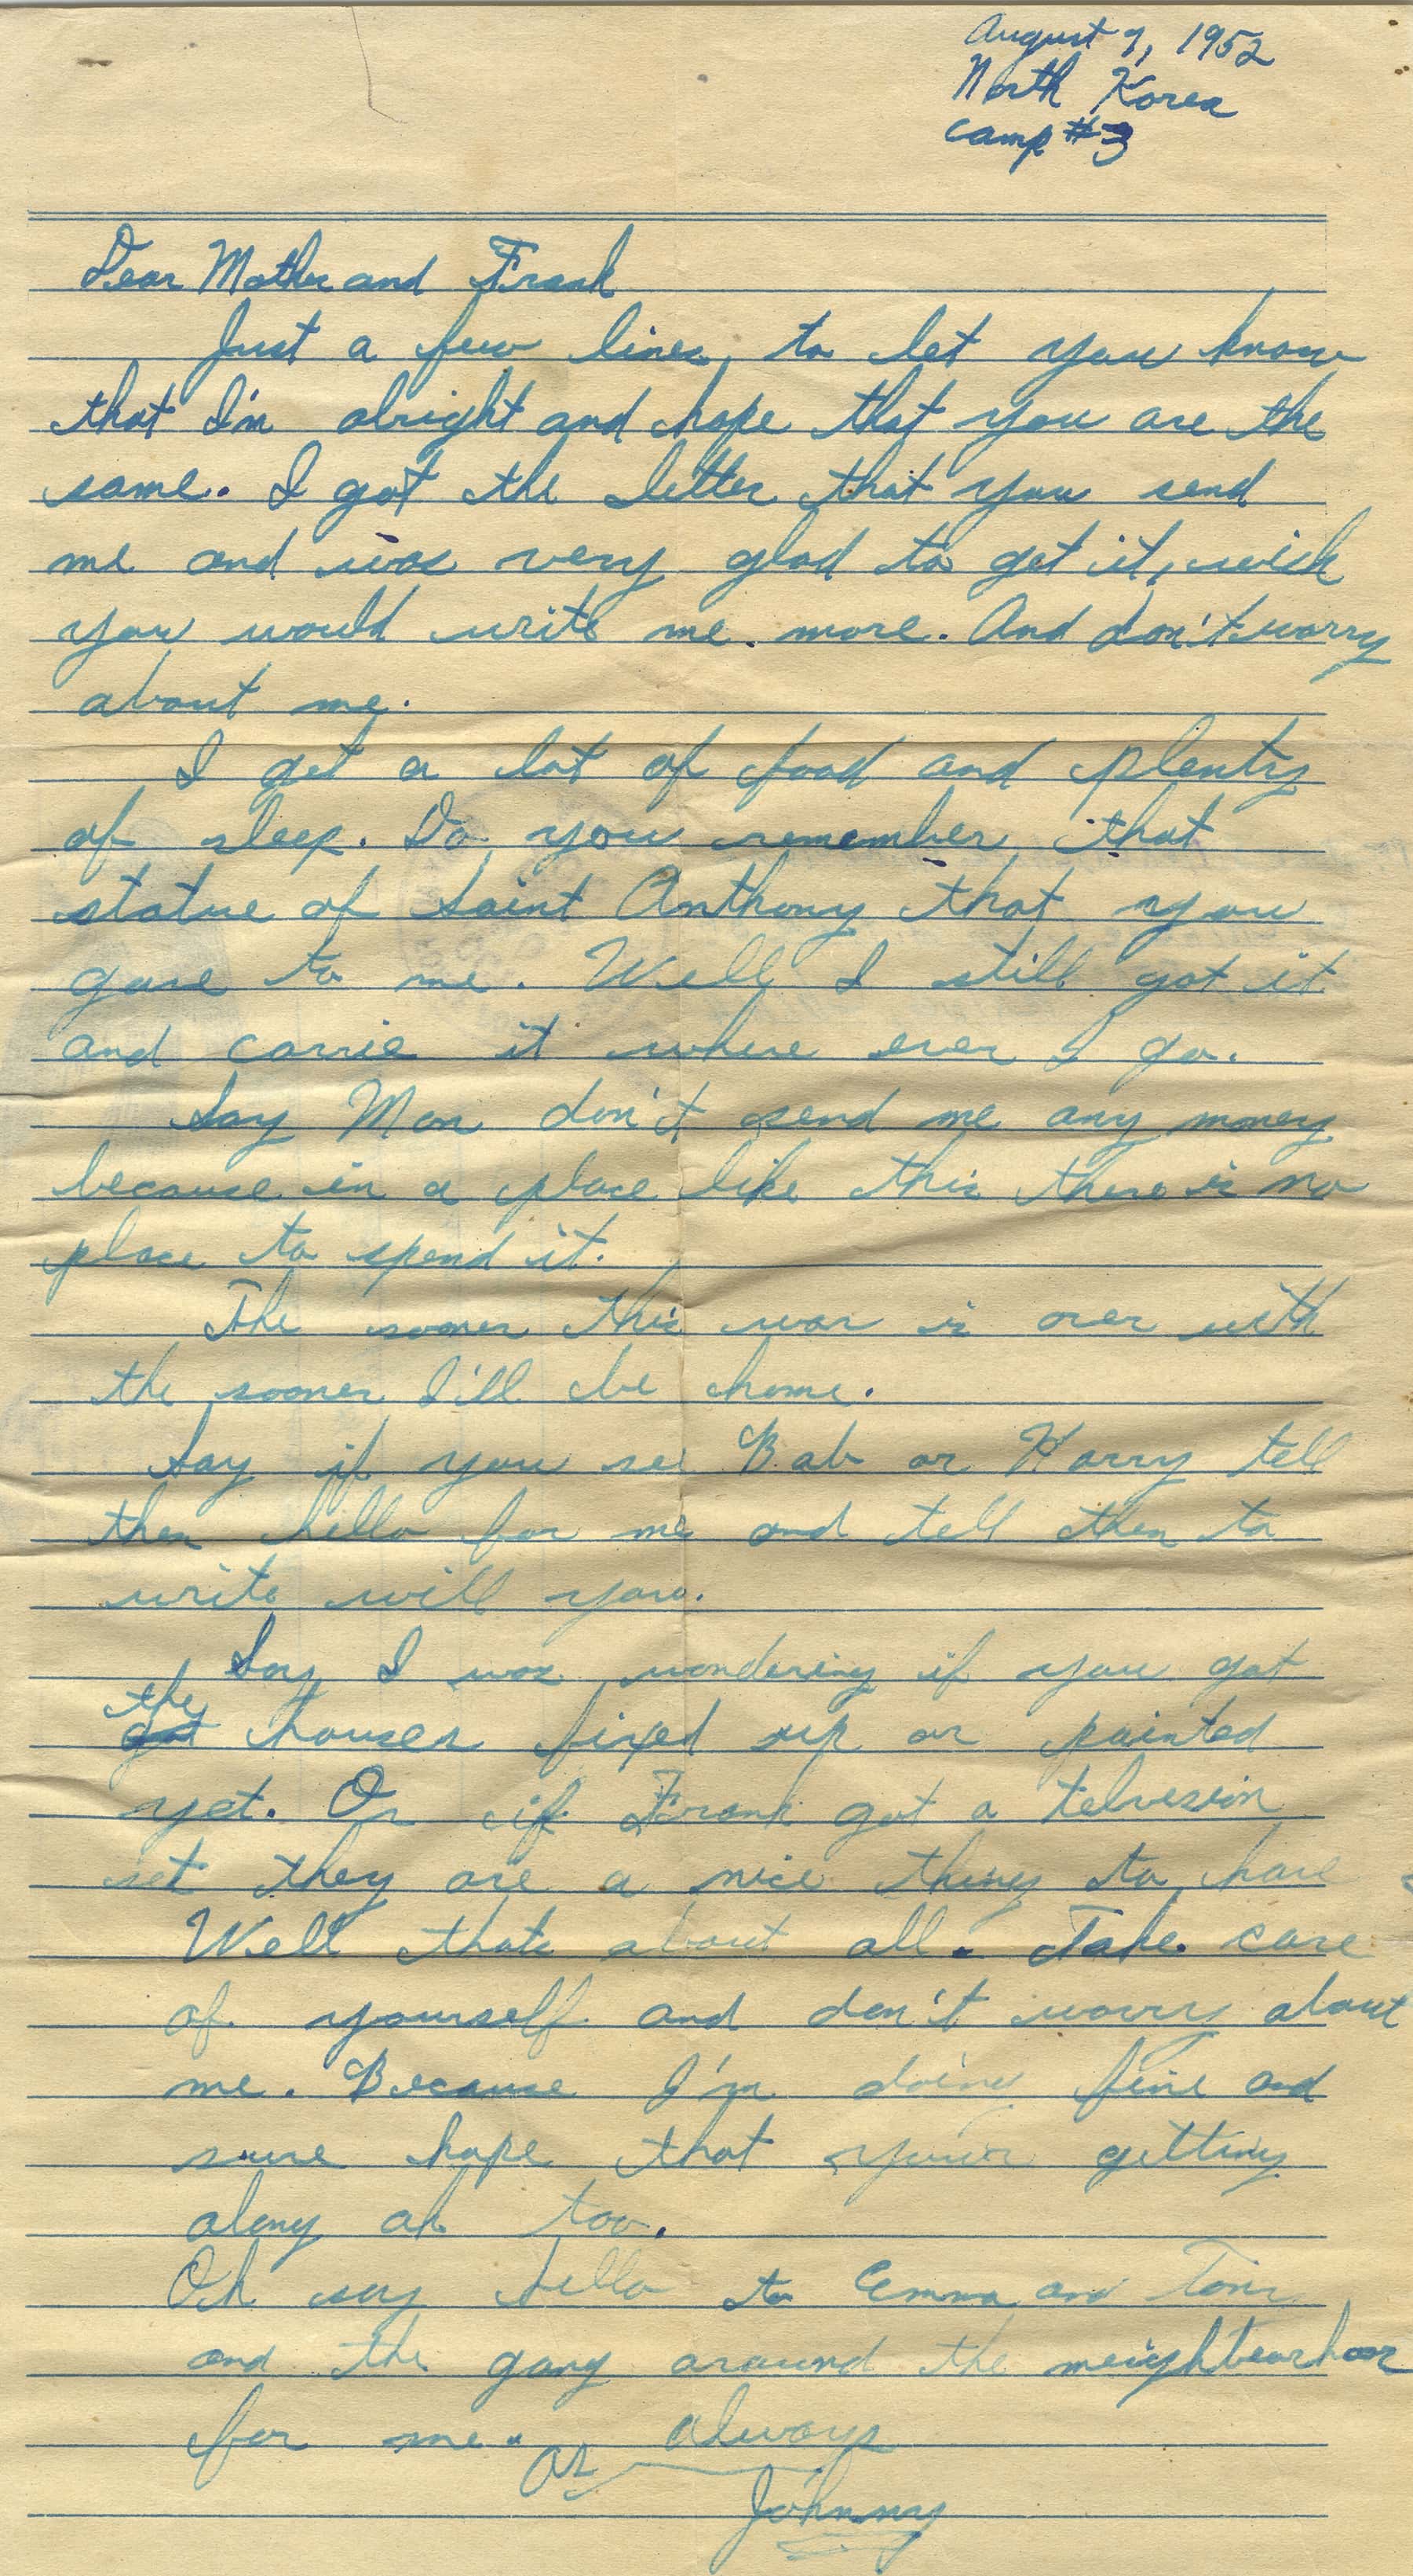 August 9, 1952
North Korea
Camp #3
Dear Mother and Frank
Just a few lines, to let you know
that I'm alright and hope that you are the
same. I got the letter that you send
me and was very glad to get it, wish
you would write me more. And don't worry
about me.
I get a lot of food and plenty
of sleep. Do you remember that
statue of Saint Anthony that you
gave to me. Well I still got it
and carrie it where ever I go.
Say Mom don't send me any money
because in a place like this there is no
place to spend it.
The sooner this war is over with
the sooner I'll be home.
Say if you see Bab or Harry tell
them hello for me and tell them to
write will you.
Say I was wondering if you got
the
got houses fixed up or painted
yet. Or if Frank got a telvesion
set they are a nice thing to have
Well thats about all. Take care
of yourself and don't worry about
me. Because I'm doing fine and
sure hope that your getting
along ok too.
Oh say hello to Emma and Tony
and the gang around the neightbourhoor
for me. as always
Johnny